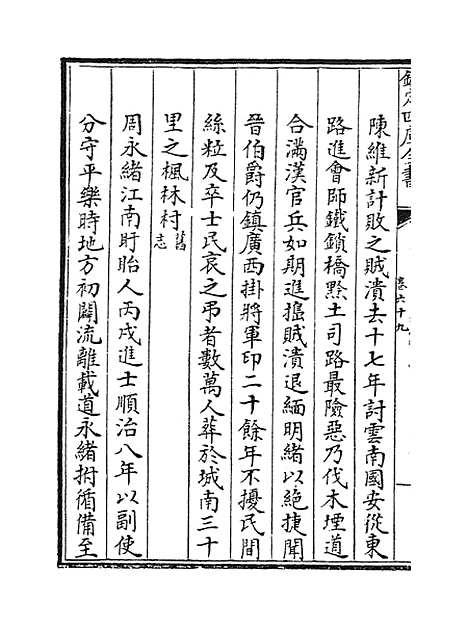 欽定四庫全書
卷六十九
陳維新計敗之賊潰去十七年討雲南國安從東
路進會師鐵鎖橋黔土司路最險惡乃伐木堙道
合滿漢官兵如期進搗賊潰退緬明緒以絶捷聞
晉伯爵仍鎮廣西掛將軍印二十餘年不擾民間
絲粒及卒士民哀之弔者數萬人葬於城南三十
里之楓林村舊志
周永緒江南盱眙人丙戌進士順治八年以副使
分守平樂時地方初闢流離載道永緒拊循備至